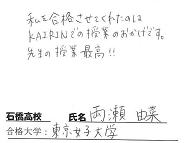 私を合格させてくれたのは
KAIRINでの授業のおかげです。
先生の授業最高!!
石橋高校 氏名 両瀬 由菜
合格大学:東京女子大学